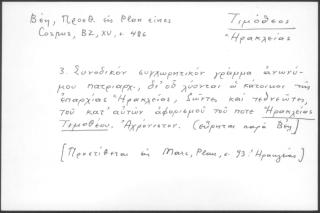 Βέη, Προσθ. εἰς Plan eines
Corpus, BZ, XV, σ. 486
Τιμόθεος
Ἡρακλείας
3. Συνοδικὸν συγχωρητικὸν γράμμα ἀνωνύ-
μου πατριάρχ. δι' οὗ λύονται οἱ κάτοικοι τῆς
ἐπαρχίας Ἡρακλείας, ζῶντες καὶ τεθνεῶτες,
τοῦ κατ' αὐτῶν ἀφορισμοῦ τοῦ ποτε Ἡρακλείας
Τιμοθέου. Ἀχρόνιστον. (εὕρηται παρὰ Βέη]
[Προστίθεται εἰς Marc, Plan, σ. 93: Ἡρακλείας]